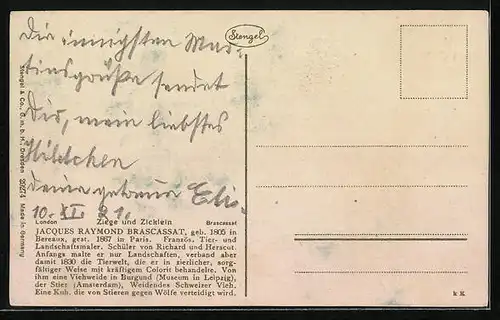 Die innigsten Mar-
tinsgrüße sendet
Dir, mein liebstes
Hildchen
Deine getreue Elis.
10. XI. 21.
Stengel
London Ziege und Zicklein Brascassat
JACQUES RAYMOND BRASCASSAT, geb. 1805 in
Bereaux, gest. 1867 in Paris. Französ. Tier- und
Landschaftsmaler. Schüler von Richard und Herscut.
Anfangs malte er nur Landschaften, verband aber
damit 1830 die Tierwelt, die er in zierlicher, sorg-
fältiger Weise mit kräftigem Colorit behandelte. Von
ihm eine Viehweide in Burgund (Museum in Leipzig),
der Stier (Amsterdam), Weidendes Schweizer Vieh.
Eine Kuh, die von Stieren gegen Wölfe verteidigt wird.
Stengel & Co., G. m. b. H., Dresden 29274 Made in Germany